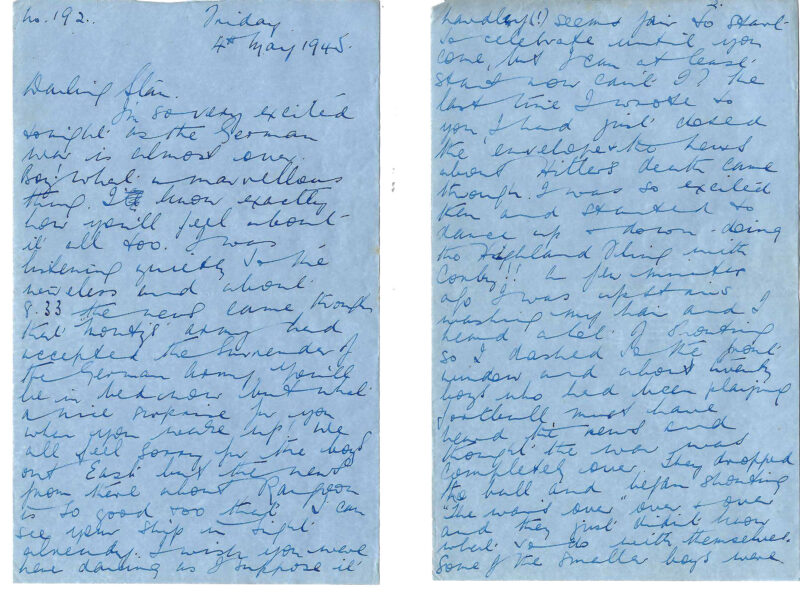 No. 192.
Friday
4th May 1945.
Darling Stan.
I'm so very excited
tonight as the German
war is almost over.
Boy what a marvellous
thing. I know exactly
how you'll feel about
it all too. I was
listening quietly to the
wireless and about
8.33 the news came through
that "Monty's" army had
accepted the surrender of
the German Army. You'll
be in bed now but what
a nice surprise for you
when you wake up! We
all feel sorry for the boys
out East but the news
from here about Rangoon
is so good too that I can
see your ship in sight
already. I wish you were
here darling as I suppose it
2.
hardly(!) seems fair to start
to celebrate until you
come, but I can at least
start now can't I? The
last time I wrote to
you, I had just closed
the envelope & the news
about Hitler's death came
through. I was so excited
then and started to
dance up & down - doing
the Highland Fling with
Corby!! A few minutes
ago I was upstairs
washing my hair and I
heard a lot of shouting
so I dashed to the front
window and about twenty
boys who had been playing
football must have
heard the news and
thought the war was
completely over. They dropped
the ball and began shouting
"The war's over" over & over
and they just didn't know
what to do with themselves.
Some of the smaller boys were